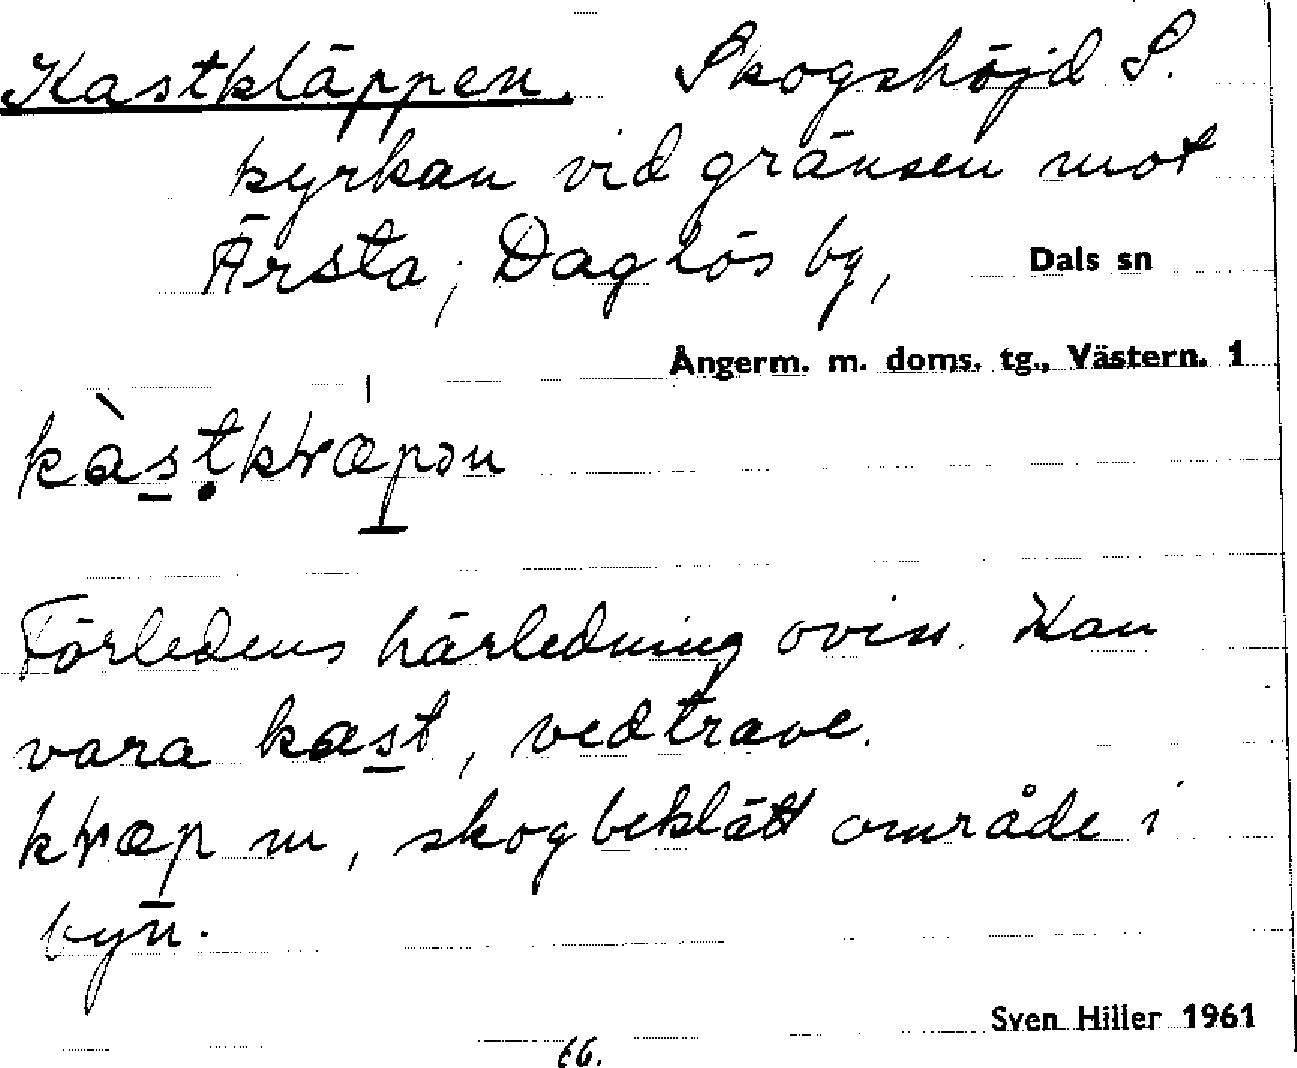 Kastkläppen. Skogshöjd S.
kyrkan vid gränsen mot
Ärsta, Daglös by, Dals sn
Ångerm. m. doms. tg., Västern. 1
kàs̲ṭkɽæp̲ən
Förledens härledning oviss. Kan
vara kas̲t, vedtrave.
kɽæp̲ m, skogbeklätt område i
byn.
Sven Hiller 1961
66.